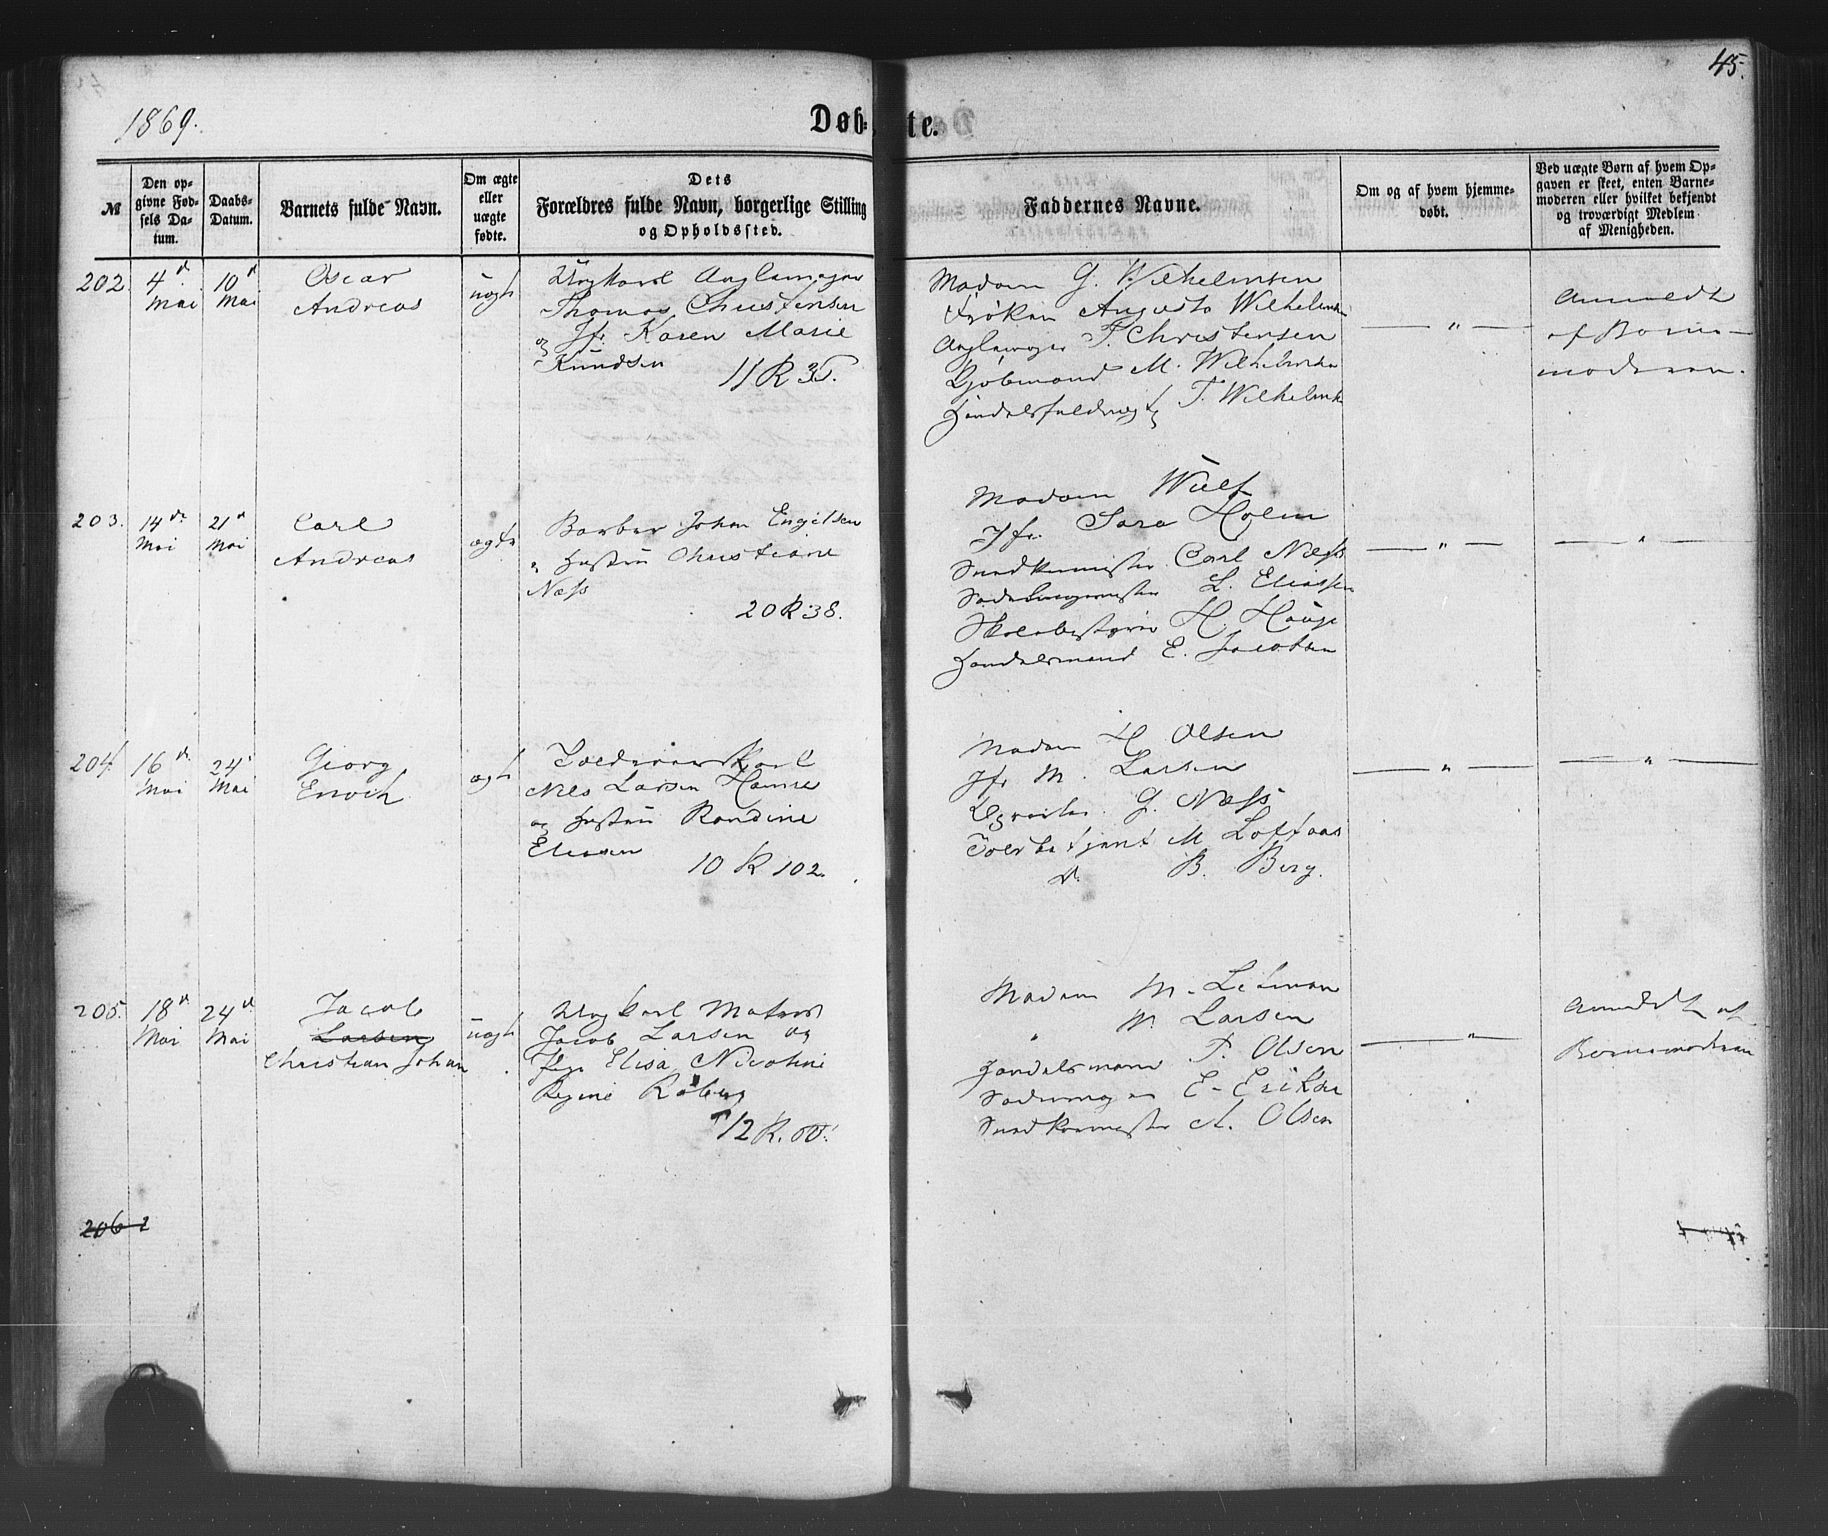 45.
1869.
Døb-te.
№
Den op-
givne Fød-
sels Da-
tum.
Daabs-
Datum.
Barnets fulde Navn.
Om ægte
eller
uægte
fødte.
Dets
Forældres fulde Navn, borgerlige Stilling
og Opholdssted.
Faddernes Navne.
Om og af hvem hjemme-
døbt.
Ved uægte Børn af hvem Op-
gaven er skeet, enten Barne-
moderen eller hvilket bekjendt
og troværdigt Medlem
af Menigheden.
202
4 d
Mai
10 d
Mai
Oscar
Andreas
uægt
Ungkarl
Thomas Christensen
og Jfr Karen Marie
Knudsen
11 R 35.
Madam G. Wilhelmsen
Frøken Augusta Wilhelmsen
P. Christensen
M. Wilhelmsen
Handelsfuldmægt T. Wilhelmsen
— " —
Anmeldt
af Barne-
moderen.
203.
14 de
Mai
21 d
Mai
Carl
Andreas
ægte
Barber Johan Engelsen
Hustru Christiane
Næss
20 R 38.
Madam Wulf
Jfr. Sara Holm
Snedkermester Carl Næss
L. Eliassen
Skolebestyrer H. Hauge
Handelsmand E. Jacobsen
— " —
— " —
204.
16 de
Mai
24 d
Mai
Georg
Enoch
ægt
Nils Larsen Hamre
og Hustru Randine
Eliasen
10 R 102.
Madam H Olsen
Jfr M. Larsen
G. Næss
Toldbetjent M Loftaas
d. B. Berg.
— " —
— " —
205.
18 d
Mai
24 d
Mai
Jacob
Larsen
Christian Johan
uægt
Ungkarl Matros
Jacob Larsen og
Pige Elisa Nicoline
Regine Råberg
12 R. 60.
Madam M. Lehman
" M. Larsen
Handelsmand P. Olsen
E. Eriksen
Snedkermester A. Olsen
— " —
Anmeldt af
Barnemoderen
206